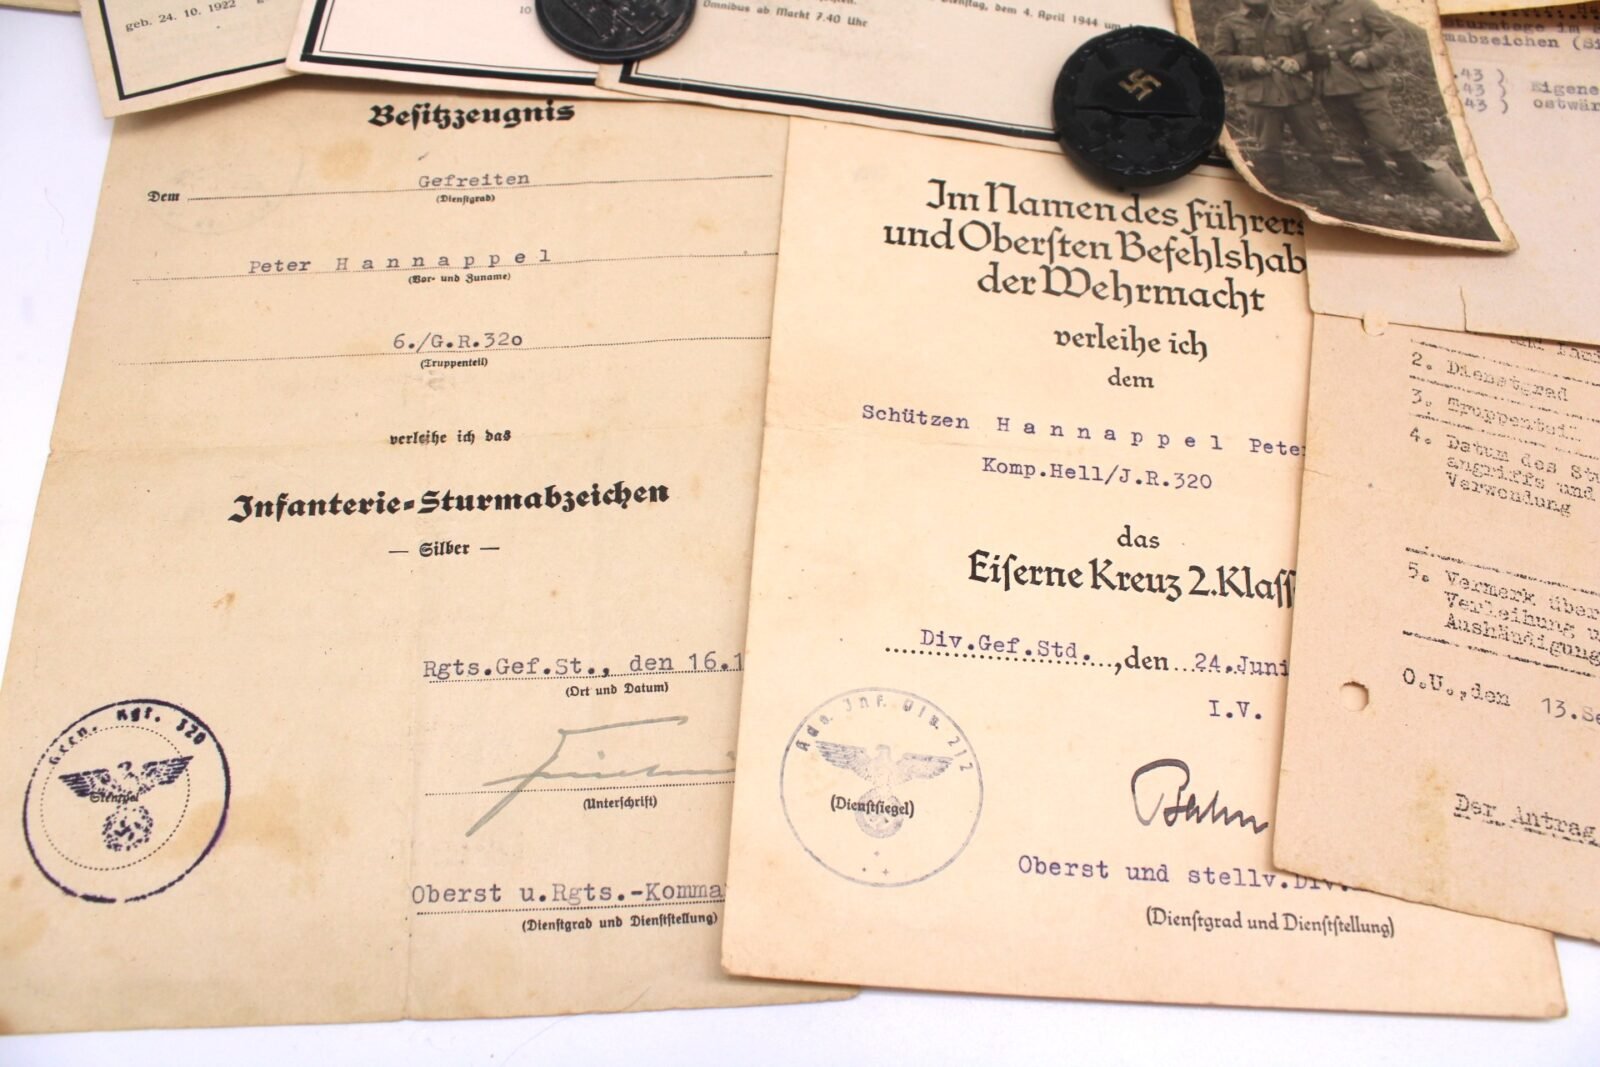 geb. 24. 10. 1922
10
Dienstag, dem 4. April 1944 um
Omnibus ab Markt 7.40 Uhr
Besitzzeugnis
Dem Gefreiten
(Dienstgrad)
Peter Hannappel
(Vor- und Zuname)
6./G.R.320
(Truppenteil)
verleihe ich das
Infanterie-Sturmabzeichen
— Silber —
Rgts.Gef.St., den 16.1
(Ort und Datum)
(Unterschrift)
Oberst u.Rgts.-Komma
(Dienstgrad und Dienststellung)
Gren. Rgt. 320
Stempel
Im Namen des Führers
und Obersten Befehlshab
der Wehrmacht
verleihe ich
dem
Schützen Hannappel Peter
Komp.Hell/J.R.320
das
Eiserne Kreuz 2.Klass
Div.Gef.Std. ,den 24.Juni
I.V.
Inf. Div. 212
(Dienstsiegel)
Oberst und stellv.Div.
(Dienstgrad und Dienststellung)
Sturmtage im
mabzeichen (Si
.43 ) Eigene
.43 )
43 ) ostwär
2. Dienstgrad
3. Truppenteil
4. Datum des Stu
angriffs und
Verwendung
5. Vermerk über
Verleihung u
Aushändigung
O.U.,den 13.Se
Der Antrag